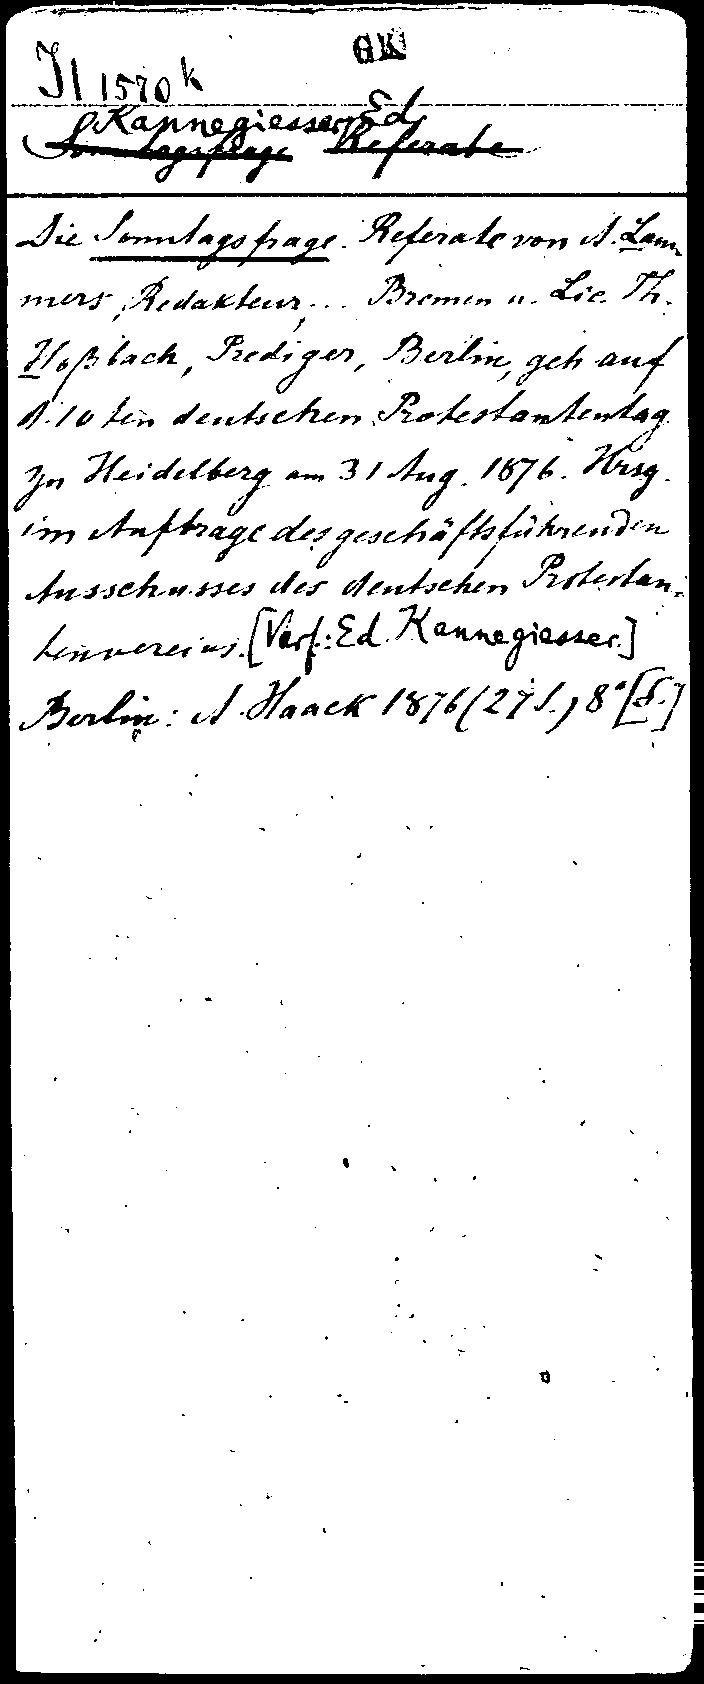 GK
Jl 1570 k
Kannegiesser, Ed.
Sonntagsfrage Referate
Die Sonntagsfrage. Referate von A. Lam-
mers, Redakteur, ... Bremen u. Lic. Th.
Hoßbach, Prediger, Berlin, geh auf
d. 10 ten deutschen Protestantentag
zu Heidelberg am 31 Aug. 1876. Hrsg.
im Auftrage des geschäftsführenden
Ausschusses des deutschen Protestan-
tenvereins. [Verf.: Ed. Kannegiesser.]
Berlin: A. Haack 1876 (27 S.) 8° [S.]